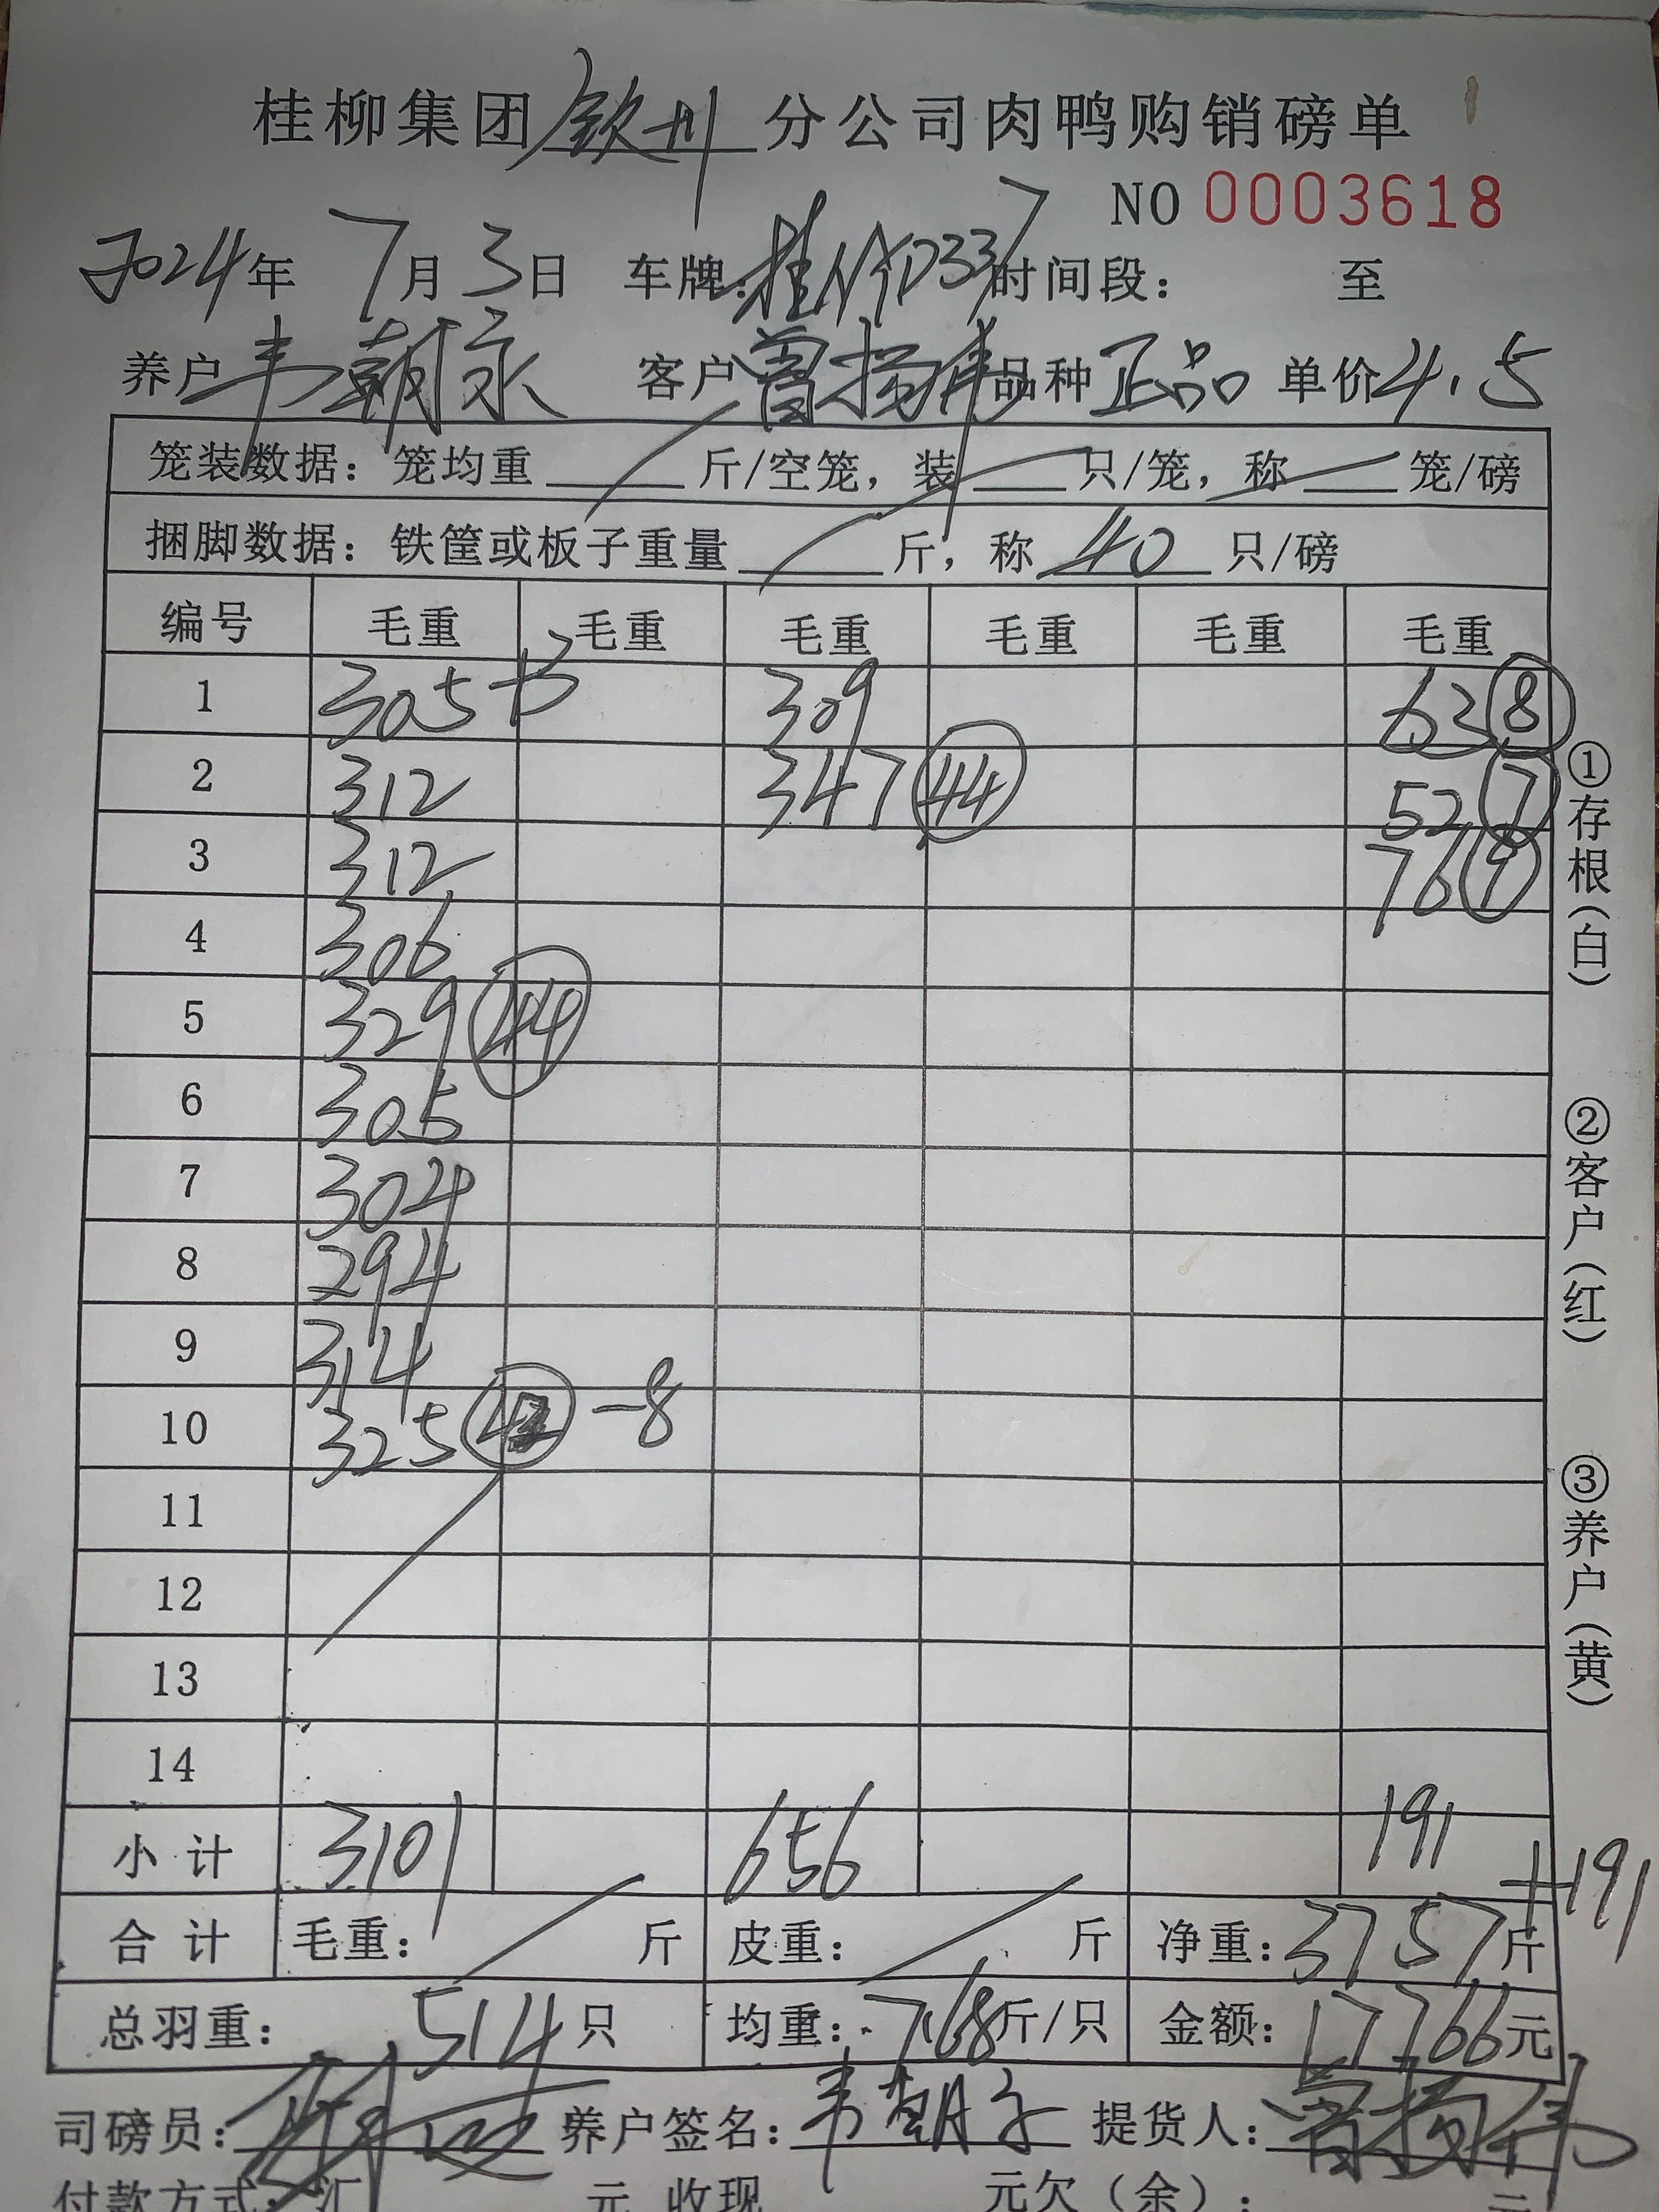 桂柳集团钦州分公司肉鸭购销磅单
NO 0003618
2024年 7月 3日 车牌: 时间段: 至
养户韦朝永 客户曾扬伟 品种正品 单价4.5
笼装数据: 笼均重 斤/空笼, 装 只/笼, 称 笼/磅
捆脚数据: 铁筐或板子重量 斤, 称 40 只/磅
编号 毛重 毛重 毛重 毛重 毛重 毛重
1 305 +3 309 62 ⑧
2 312 347 ㊹ 52 ⑦
3 312 76 ⑨
4 306
5 329 ㊹
6 305
7 304
8 294
9 314
10 325 -8
11
12
13
14
小计 3101 656 191
+191
合计 毛重: 斤 皮重: 斤 净重: 3757斤
总羽重: 514只 均重: 7.68斤/只 金额: 17766元
司磅员: 养户签名: 韦朝永 提货人: 曾扬伟
付款方式: 汇 元 收现 元欠(余): 元
①存根(白)
②客户(红)
③养户(黄)